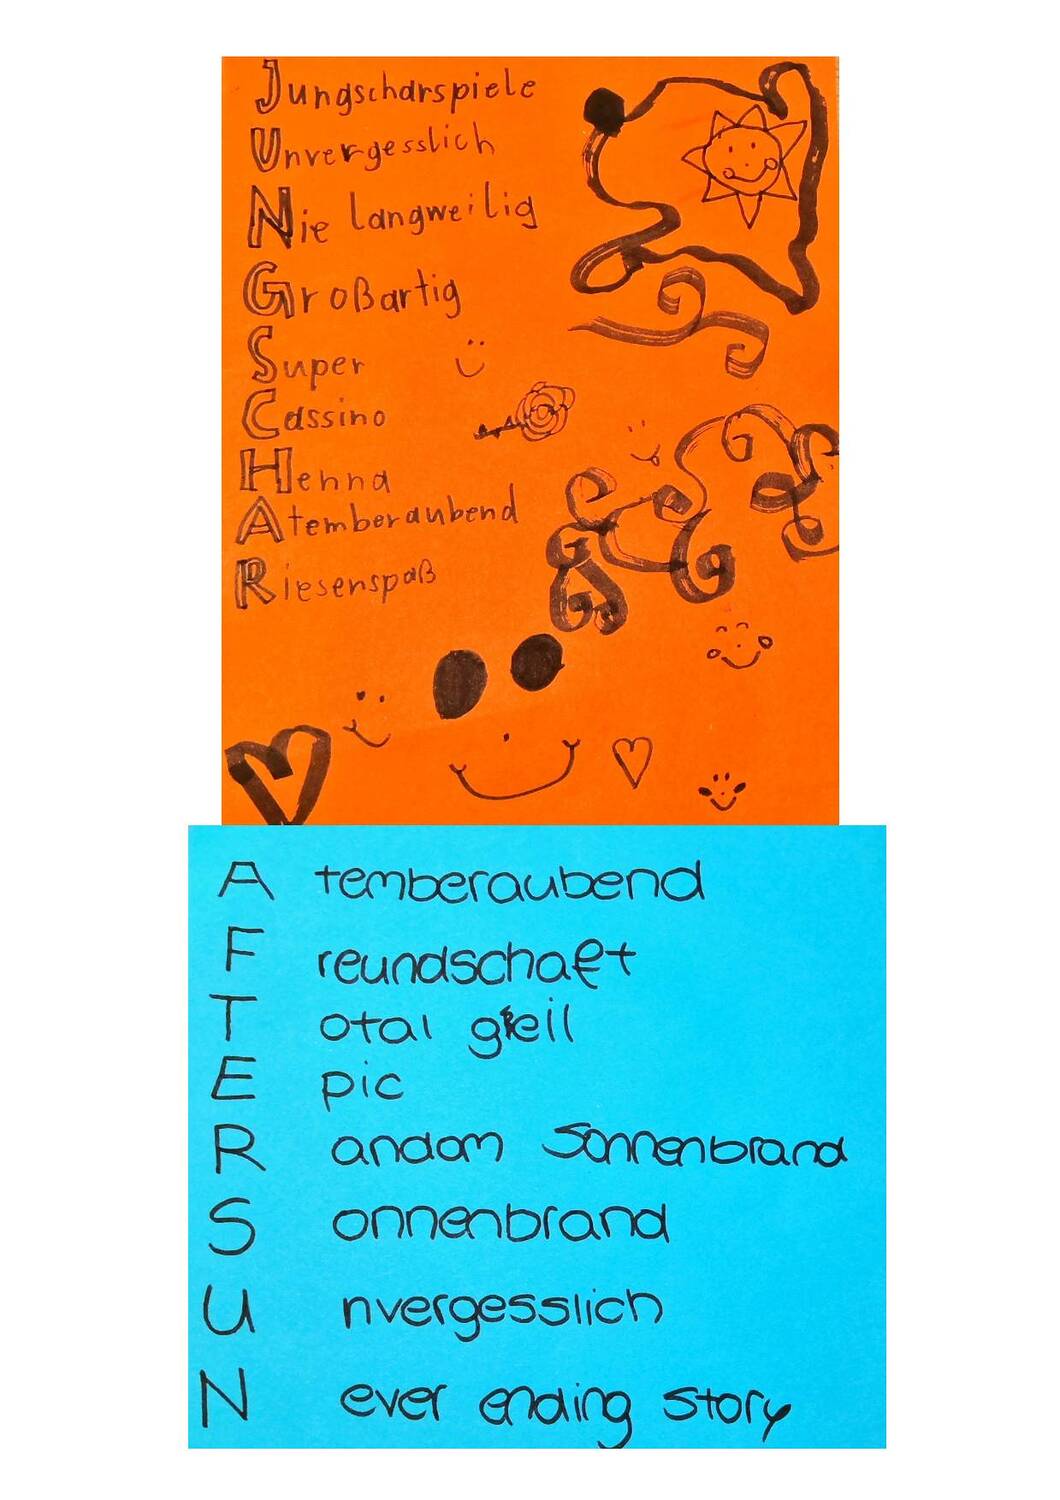 Jungscharspiele
Unvergesslich
Nie langweilig
Großartig
Super
Cassino
Henna
Atemberaubend
Riesenspaß
A temberaubend
F reundschaft
T otal geil
E pic
R andom Sonnenbrand
S onnenbrand
U nvergesslich
N ever ending story